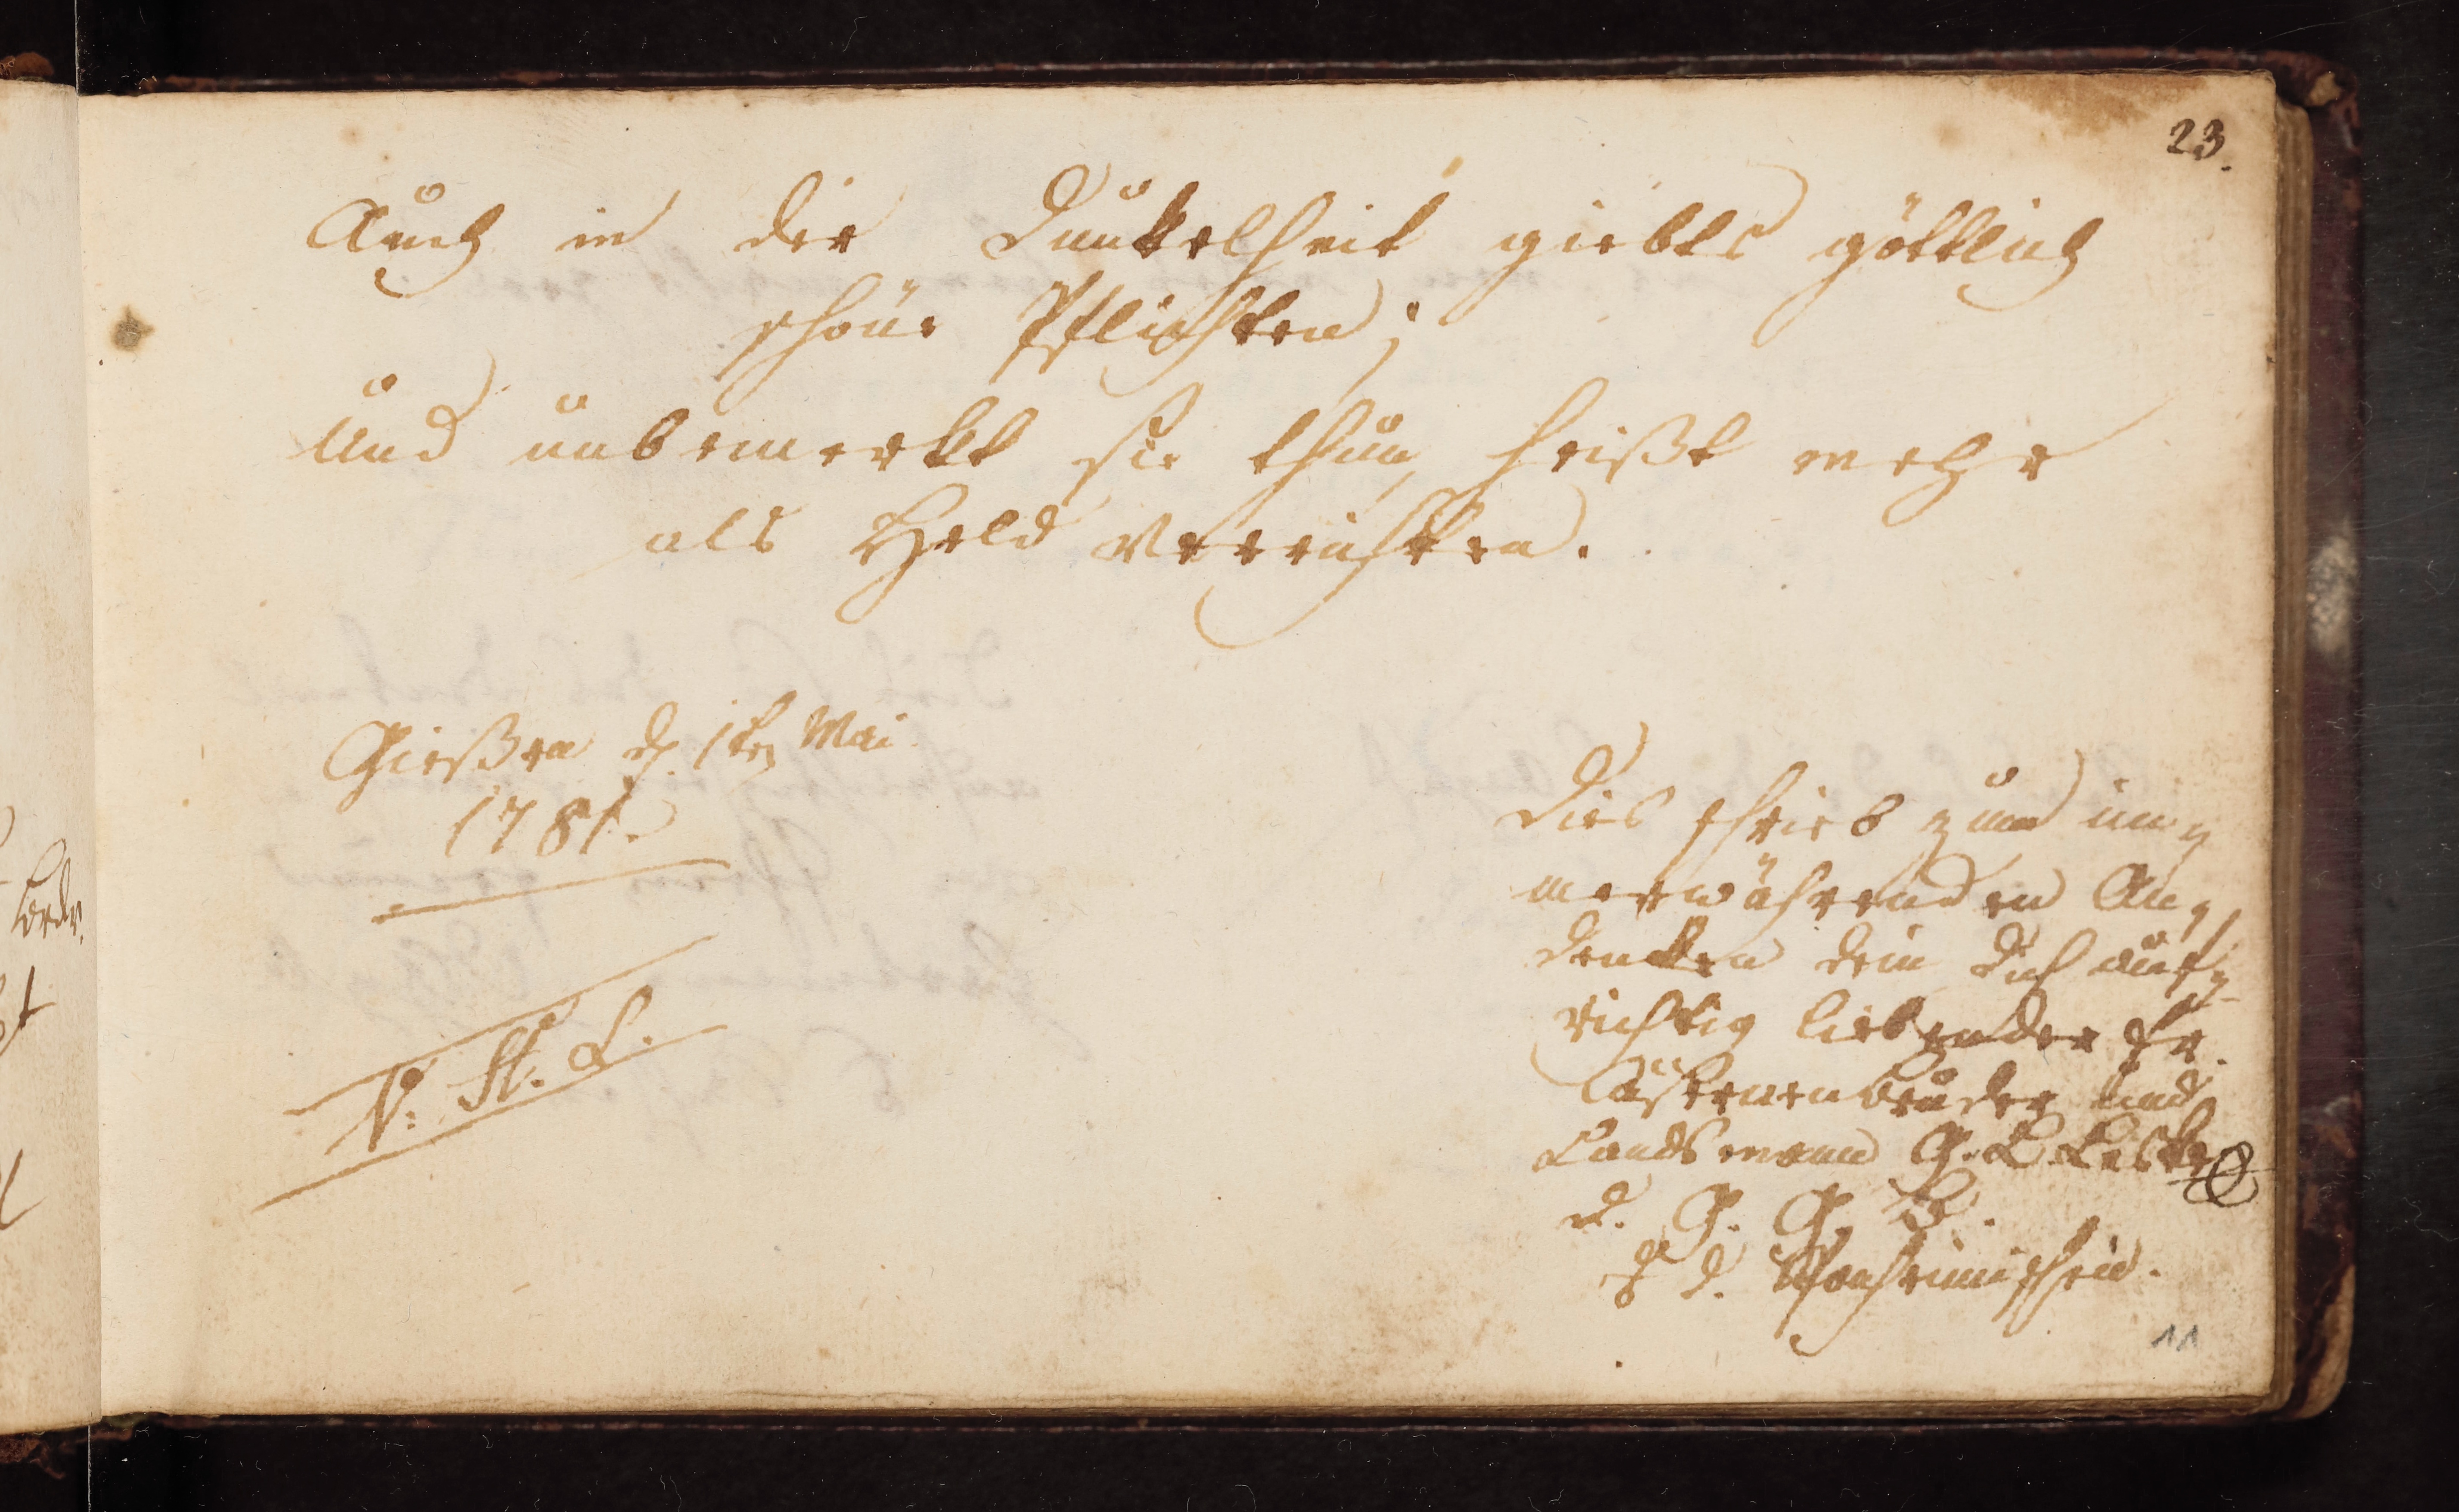 23.
Auch in der Dunkelheit giebts göttlich
schöne Pflichten;
Und unbemerkt sie thun, heißt mehr
als Held verrichten.
Gießen d. 1ten Mai
1781.
V. St. L.
Dies schrieb zum im⸗
merwährenden An⸗
dencken dein dich auf⸗
richtig liebender Fr.
Casernenbruder und
Landsmann G. L.
d. G. G. B.
11